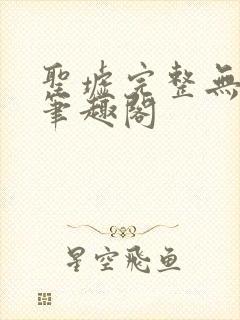 聖墟完整無
筆趣閣
星空飛鱼